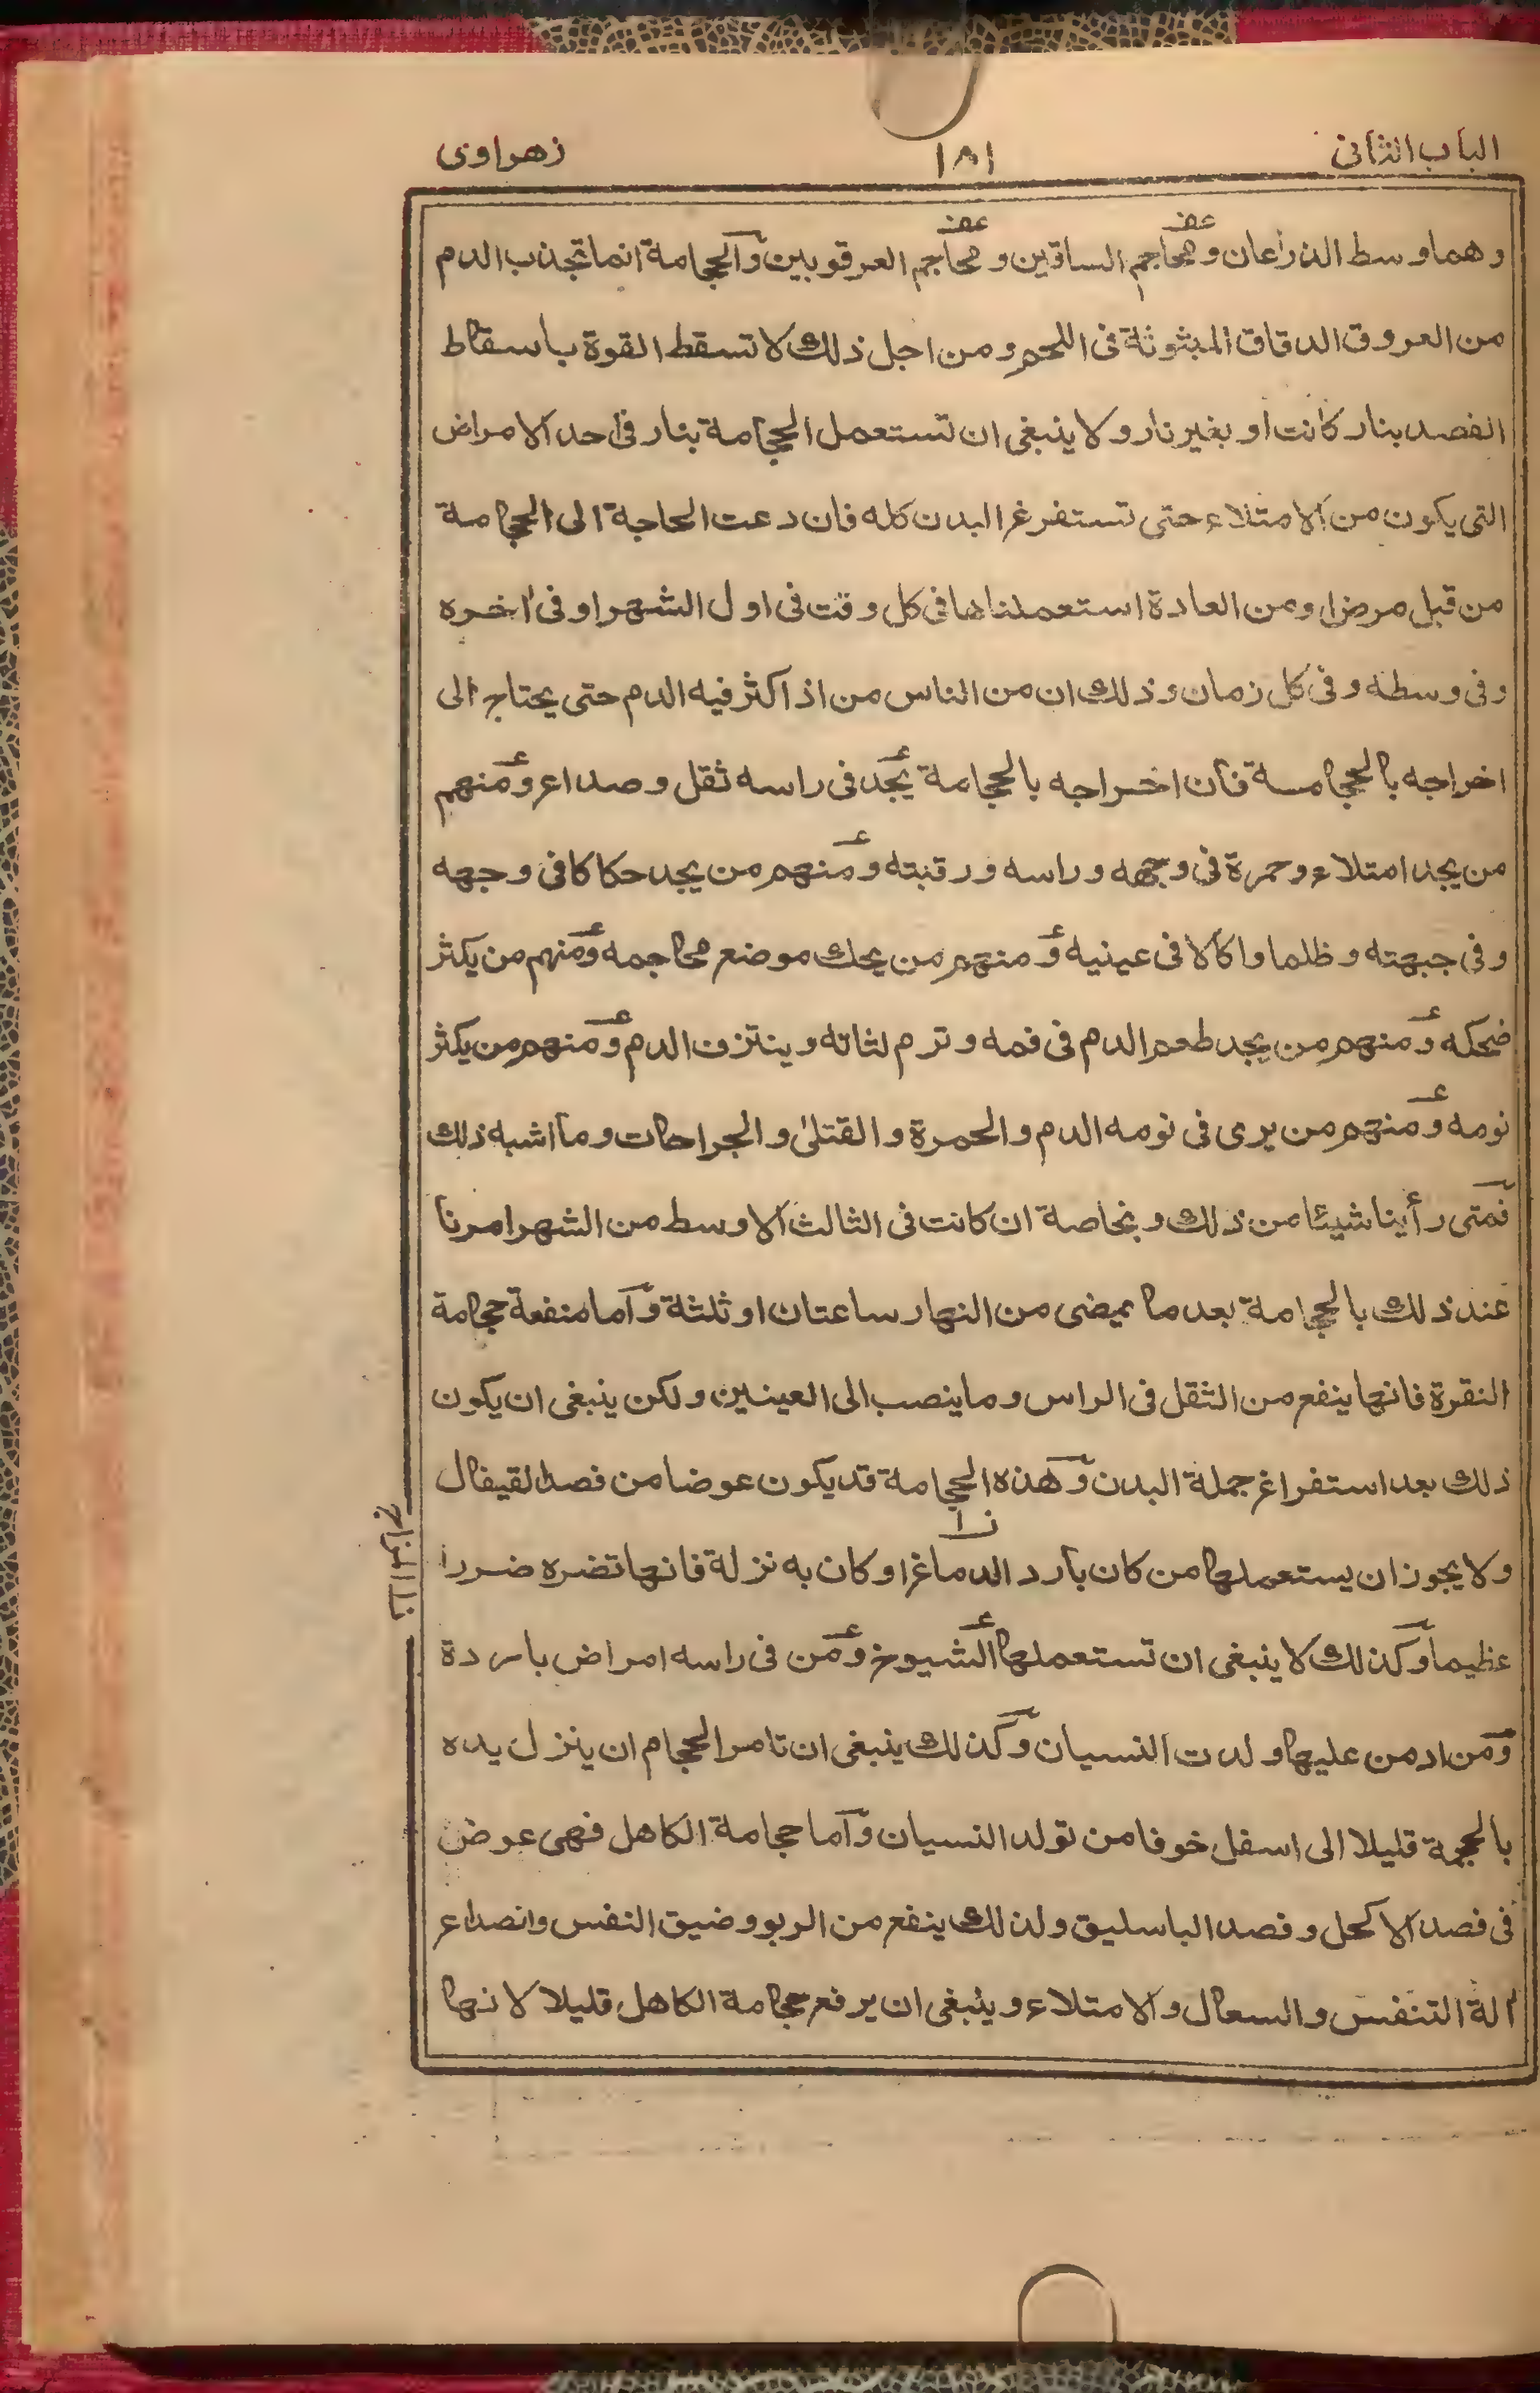 الباب الثانى ١٨١ زهراوى
وهما وسط الذراعان ومحاجم الساقين ومحاجم العرقوبين والحجامة انما تجذب الدم
من العروق الدقاق المبثوثة فى اللحم ومن اجل ذلك لا تسقط القوة باسقاط
الفصد بنار كانت او بغير نار ولا ينبغى ان تستعمل الحجامة بنار فى احد الامراض
التى يكون من الامتلاء حتى تستفرغ البدن كله فان دعت الحاجة الى الحجامة
من قبل مرض او من العادة استعملناها فى كل وقت فى اول الشهر او فى اخره
وفى وسطه وفى كل زمان وذلك ان من الناس من اذا كثر فيه الدم حتى يحتاج الى
اخراجه بالحجامة فان اخراجه بالحجامة يجد فى راسه ثقل وصداع ومنهم
من يجد امتلاء وحمرة فى وجهه وراسه ورقبته ومنهم من يجد حكاكا فى وجهه
وفى جبهته وظلما واكالا فى عينيه ومنهم من يحك موضع محاجمه ومنهم من يكثر
ضحكه ومنهم من يجد طعم الدم فى فمه وترم لثاته وينتزف الدم ومنهم من يكثر
نومه ومنهم من يرى فى نومه الدم والحمرة والقتلى والجراحات وما اشبه ذلك
فمتى رأينا شيئا من ذلك وبخاصة ان كانت فى الثالث الاوسط من الشهر امرنا
عند ذلك بالحجامة بعد ما يمضى من النهار ساعتان او ثلثة واما منفعة حجامة
النقرة فانها ينفع من الثقل فى الراس وما ينصب الى العينين ولكن ينبغى ان يكون
ذلك بعد استفراغ جملة البدن وهذه الحجامة قد يكون عوضا من فصد القيفال
ولا يجوز ان يستعملها من كان بارد الدماغ او كان به نزلة فانها تضره ضررا
عظيما وكذلك لا ينبغى ان تستعملها الشيوخ ومن فى راسه امراض باردة
ومن ادمن عليها ولدت النسيان وكذلك ينبغى ان تامر الحجام ان ينزل يده
بالمحجمة قليلا الى اسفل خوفا من تولد النسيان واما حجامة الكاهل فهى عوض
فى فصد الاكحل وفصد الباسليق ولذلك ينفع من الربو وضيق النفس وانصداع
الة التنفس والسعال والامتلاء وينبغى ان يرفع حجامة الكاهل قليلا لانها